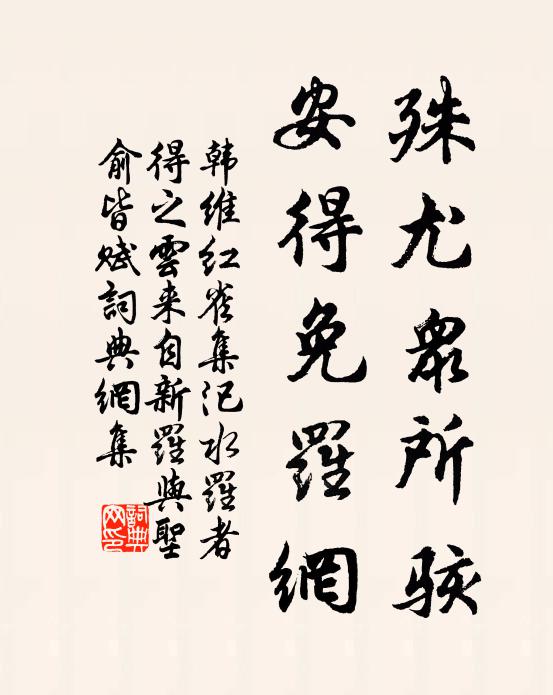 殊尤衆所駭
安得免羅網
韩維红雀集汜水羅者
得之雲来自新羅與聖
俞皆赋詞典網集
詞典網印